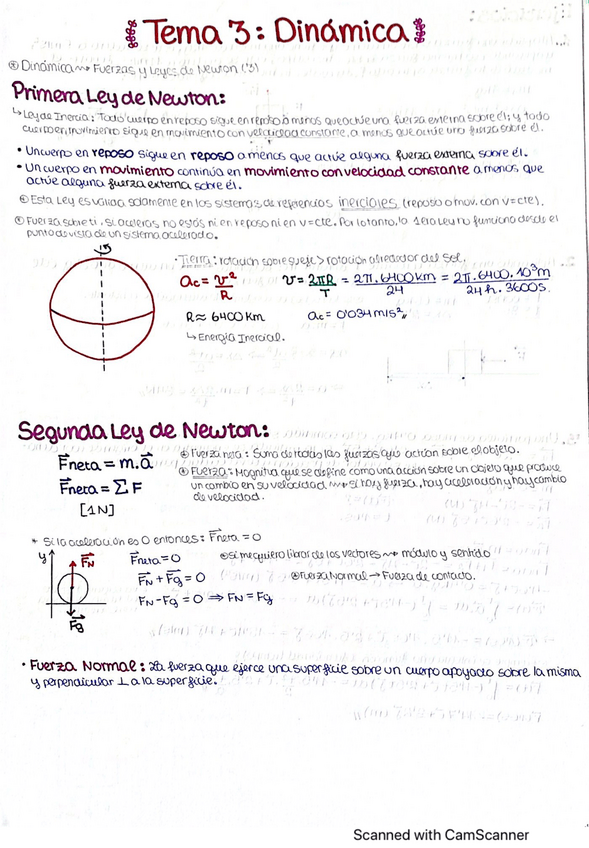 Tema 3: Dinámica
⊛ Dinámica ~> Fuerzas y Leyes de Newton (3)
Primera Ley de Newton:
↳ Ley de Inercia: Todo cuerpo en reposo sigue en reposo a menos que actúe una fuerza externa sobre él; y todo
cuerpo en movimiento sigue en movimiento con velocidad constante, a menos que actúe una fuerza sobre él.
• Un cuerpo en reposo sigue en reposo a menos que actúe alguna fuerza externa sobre él.
• Un cuerpo en movimiento continúa en movimiento con velocidad constante a menos que
actúe alguna fuerza externa sobre él.
⊛ Esta Ley es válida solamente en los sistemas de referencias inerciales (reposo o mov. con v=cte).
⊛ Fuerza sobre ti, si aceleras no estás ni en reposo ni en v=cte. Por lo tanto, la 1era Ley no funciona desde el
punto de vista de un sistema acelerado.
· Tierra: rotación sobre su eje > rotación alrededor del Sol.
ac = v²/R v = 2πR/T = 2π.6400 km/24 = 2π.6400.10³m/24h.3600s
R ≈ 6400 Km ac = 0'034 m/s²
↳ Energía Inercial.
Segunda Ley de Newton:
F⃗neta = m.a⃗
⊛ Fuerza neta: Suma de todas las fuerzas que actúan sobre el objeto.
F⃗neta = Σ F
⊛ Fuerza: Magnitud que se define como una acción sobre un objeto que produce
un cambio en su velocidad ~> si hay fuerza, hay aceleración y hay cambio
de velocidad.
[1N]
* Si la aceleración es 0 entonces: F⃗neta = 0
y F⃗N F⃗neta = 0 ⊛ Si me quiero librar de los vectores ~> módulo y sentido
F⃗N + F⃗g = 0 ⊛ Fuerza Normal → Fuerza de contacto.
FN - Fg = 0 ⇒ FN = Fg
F⃗g
• Fuerza Normal: La fuerza que ejerce una superficie sobre un cuerpo apoyado sobre la misma
y perpendicular ⊥ a la superficie.
Scanned with CamScanner